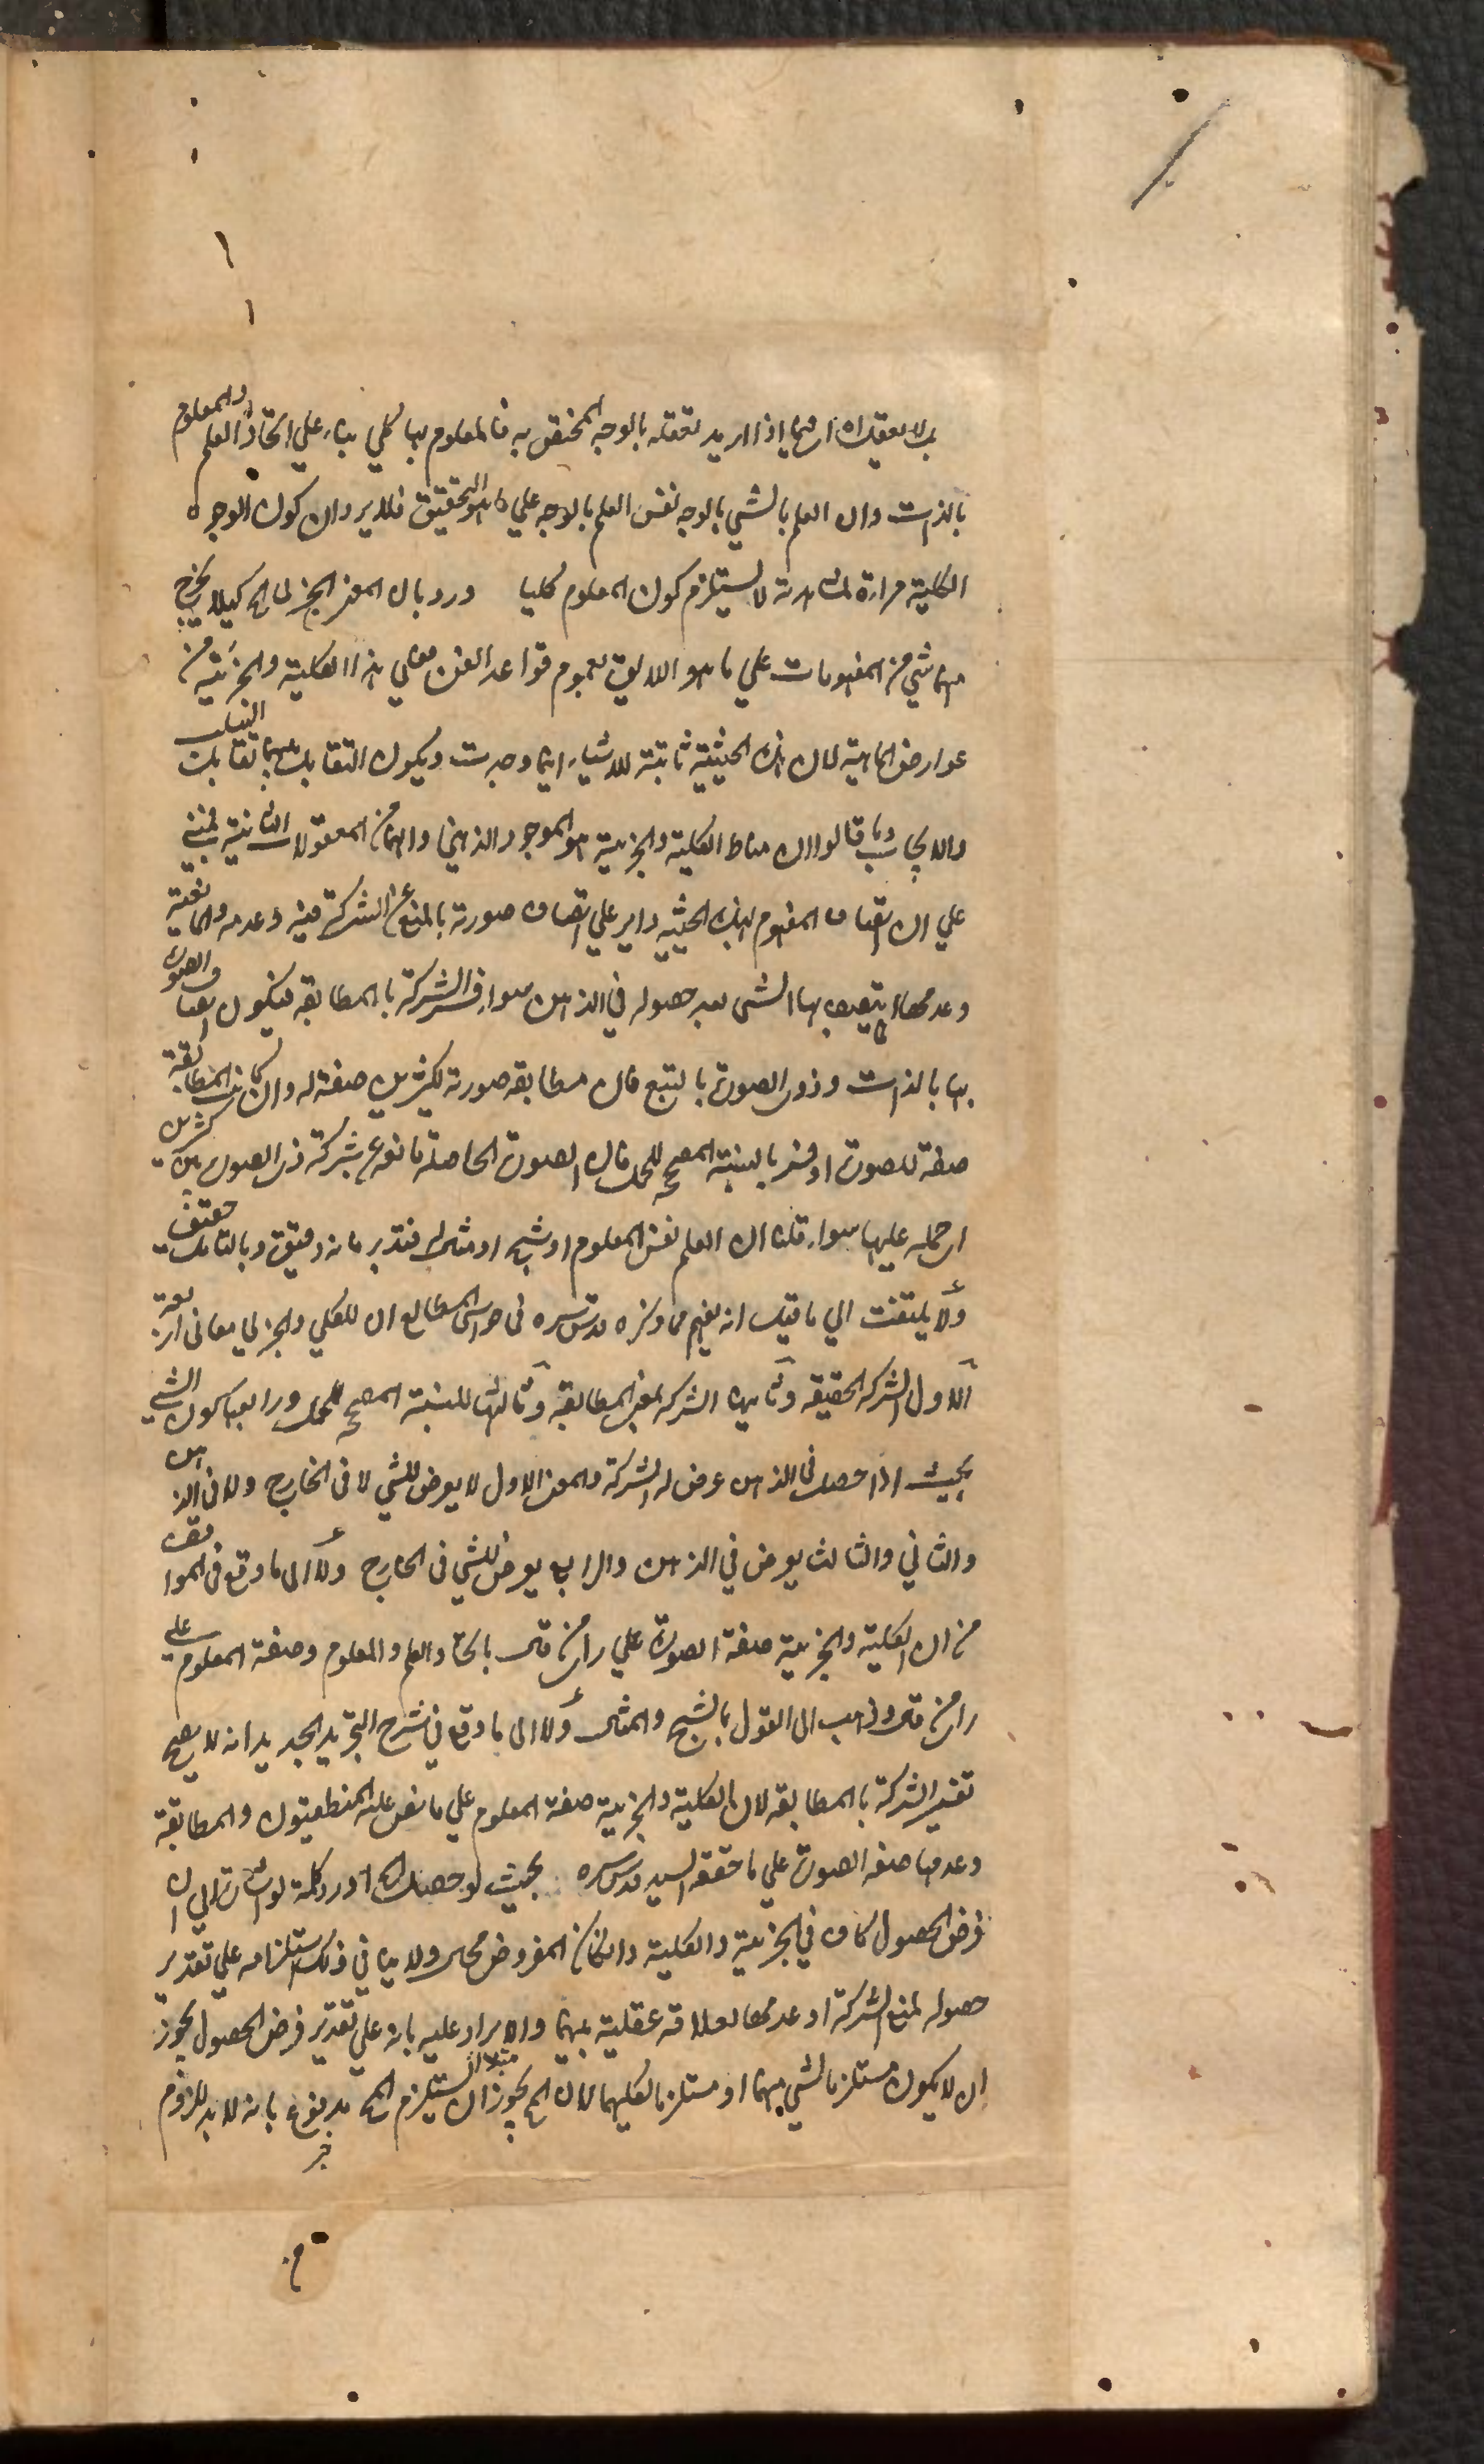 اذا اريد تعقله بالوجه المختص به فالمعلوم بها كلي بناء علي اتحاد العلم والمعلوم
بالذات وان العلم بالشي بالوجه نفس العلم بالوجه علي ما هو التحقيق فلا يرد ان كون الوجوه
الكلية مراة لمشاهدته لا يستلزم كون المعلوم كليا ورد بان المعني الجزئي الخ كيلا يخرج
منهما شي من المفهومات علي ما هو اللايق بعموم قواعد الفن فعلي هذا الكلية والجزئية من
عوارض الماهية لان هذه الحيثية ثابتة للاشياء اينما وجدت ويكون التقابل بينهما تقابل السلب
والايجاب وما قالوا ان مناط الكلية والجزئية هو الموجود الذهني وانهما من المعقولات الثانية فمبني
علي ان اتصاف المفهوم بهذه الحيثية داير علي اتصاف صورته بالمنع عن الشركة فيه وعدمه والمانعية
وعدمها انما يتصف بها الشي بعد حصوله في الذهن سواء فسر الشركة بالمطابقة فيكون اتصاف الصورة
بها بالذات وذوي الصورة بالتبع فان مطابقة صورته لكثيرين صفة له وان كانت المطابقة
صفة للصورة او فسر بالنسبة المصححة للحمل فان الصورة الحاصلة مانعة عن شركة ذي الصورة بين كثيرين
اي حمله عليها سواء قلنا ان العلم نفس المعلوم او شبحه او مثاله فتدبر فانه دقيق وبالتامل حقيق
ولا يلتفت الي ما قيل انه يفهم مما ذكره قدس سره في حواشي المطالع ان للكلي والجزئي معاني اربعة
الاول الشركة الحقيقة وثانيها الشركة بمعني المطابقة وثالثها للنسبة المصححة للحمل ورابعها كون الشي
بحيث اذا حصل في الذهن عرض له الشركة والمعني الاول لا يعرض للشي لا في الخارج ولا في الذهن
والثاني والثالث يعرض في الذهن والرابع يعرض للشي في الخارج ولا الي ما وقع في المواقف
من ان الكلية والجزئية صفة الصورة علي راي من قال باتحاد العلم والمعلوم وصفة المعلوم علي
راي من قال وذهب الي القول بالشبح والمثال ولا الي ما وقع في شرح التجريد الجديد انه لا يصح
تفسير الشركة بالمطابقة لان الكلية والجزئية صفة المعلوم علي ما نص عليه المنطقيون والمطابقة
وعدمها صفة الصورة علي ما حققه السيد قدس سره بحيث لو حصل الخ اورد كلمة لو اشارة الي ان
فرض الحصول كاف في الجزئية والكلية وان كان المفروض محالا ولا ينافي ذلك استلزامه علي تقدير
حصوله لمنع الشركة او عدمها لعلاقة عقلية بينهما والايراد عليه بانه علي تقدير فرض الحصول يجوز
ان لا يكون مستلزما لشي منهما او مستلزما لكليهما لان المح يجوز ان يستلزم المح مدفوع بانه لا بد للزوم